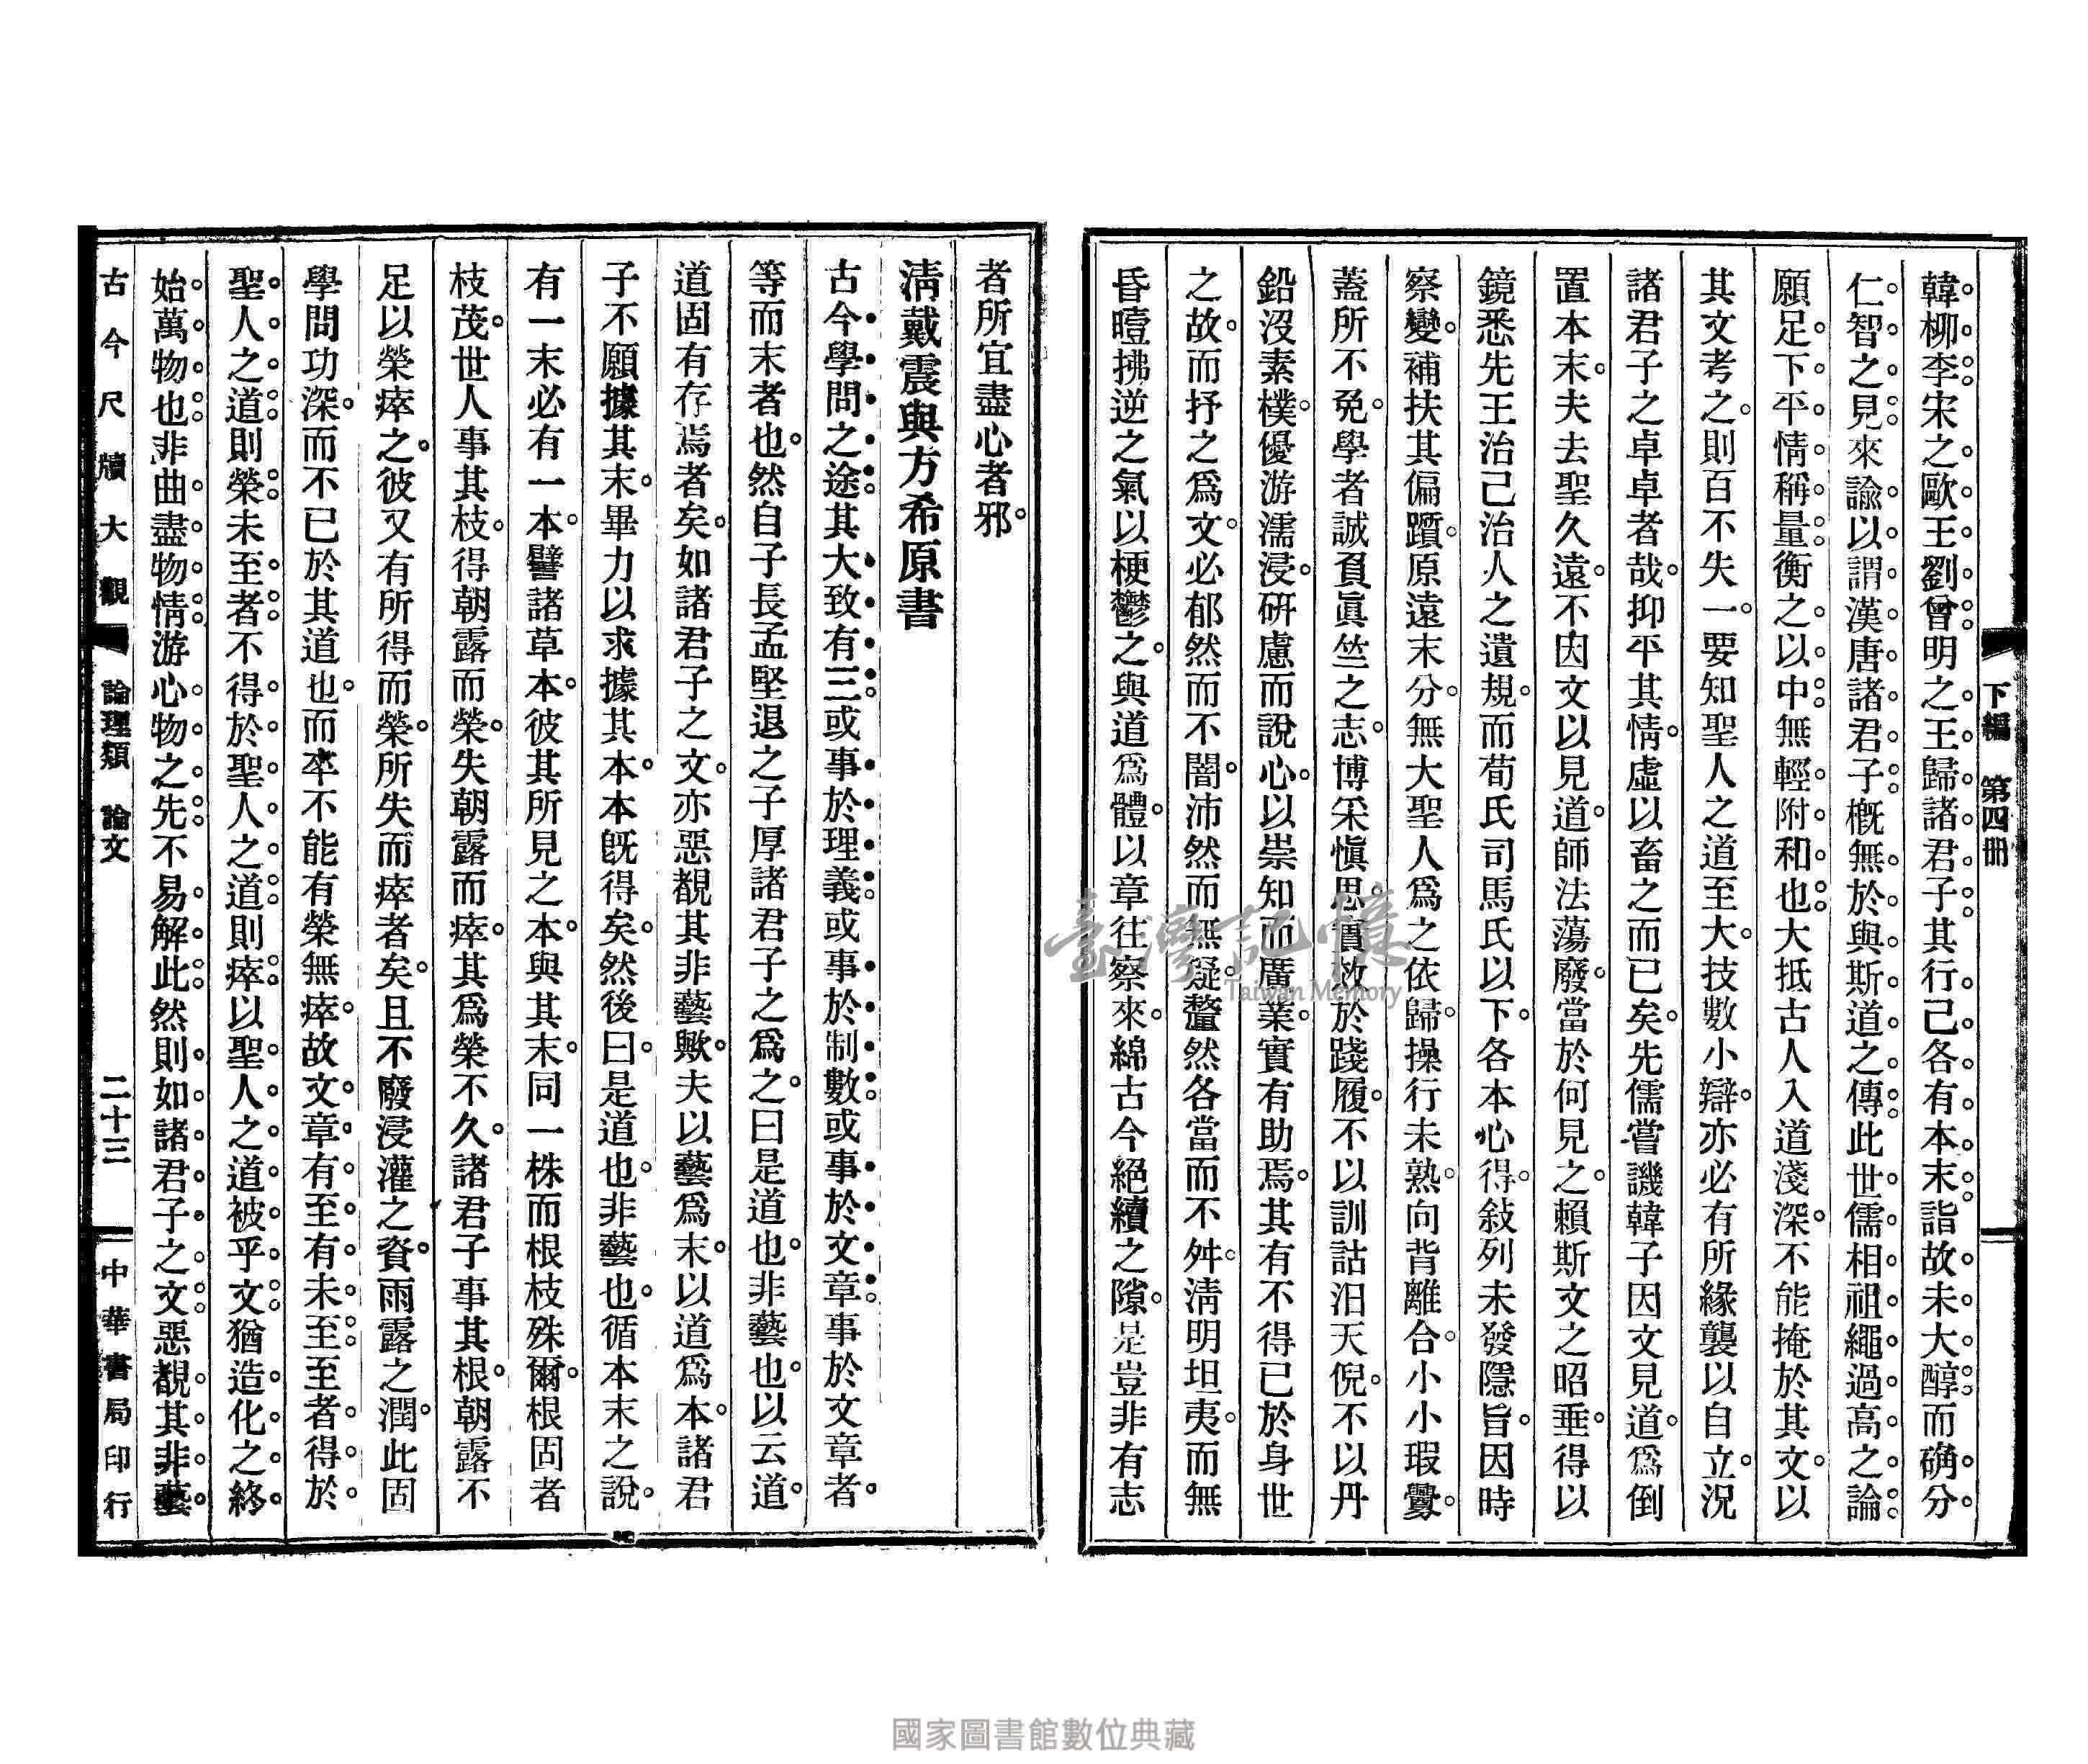 下編　第四冊
韓柳李宋之歐王劉曾明之王歸諸君子其行己各有本末詣故未大醇而确分
仁智之見來諭以謂漢唐諸君子槪無於與斯道之傳此世儒相祖繩過高之論
願足下平情稱量衡之以中無輕附和也大抵古人入道淺深不能掩於其文以
其文考之則百不失一要知聖人之道至大技數小辯亦必有所緣襲以自立況
諸君子之卓卓者哉抑平其情虛以畜之而已矣先儒嘗譏韓子因文見道爲倒
置本末夫去聖久遠不因文以見道師法蕩廢當於何見之賴斯文之昭垂得以
鏡悉先王治己治人之遺規而荀氏司馬氏以下各本心得敍列未發隱旨因時
察變補扶其偏躓原遠末分無大聖人爲之依歸操行未熟向背離合小小瑕釁
蓋所不免學者誠負眞竺之志博采愼思實效於踐履不以訓詁汨天倪不以丹
鉛沒素樸優游濡浸硏慮而說心以崇知而廣業實有助焉其有不得已於身世
之故而抒之爲文必郁然而不闇沛然而無礙釐然各當而不舛淸明坦夷而無
昏曀拂逆之氣以梗鬱之與道爲體以章往察來綿古今絕續之隙是豈非有志
者所宜盡心者邪
淸戴震與方希原書
古今學問之途其大致有三或事於理義或事於制數或事於文章事於文章者
等而末者也然自子長孟堅退之子厚諸君子之爲之曰是道也非藝也以云道
道固有存焉者矣如諸君子之文亦惡覩其非藝歟夫以藝爲末以道爲本諸君
子不願據其末畢力以求據其本本旣得矣然後曰是道也非藝也循本末之說
有一末必有一本譬諸草本彼其所見之本與其末同一株而根枝殊爾根固者
枝茂世人事其枝得朝露而榮失朝露而瘁其爲榮不久諸君子事其根朝露不
足以榮瘁之彼又有所得而榮所失而瘁者矣且不廢浸灌之資雨露之潤此固
學問功深而不已於其道也而卒不能有榮無瘁故文章有至有未至至者得於
聖人之道則榮未至者不得於聖人之道則瘁以聖人之道被乎文猶造化之終
始萬物也非曲盡物情游心物之先不易解此然則如諸君子之文惡覩其非藝
古今尺牘大觀　論理類　論文　二十三　中華書局印行
臺灣記憶
Taiwan Memory
國家圖書館數位典藏